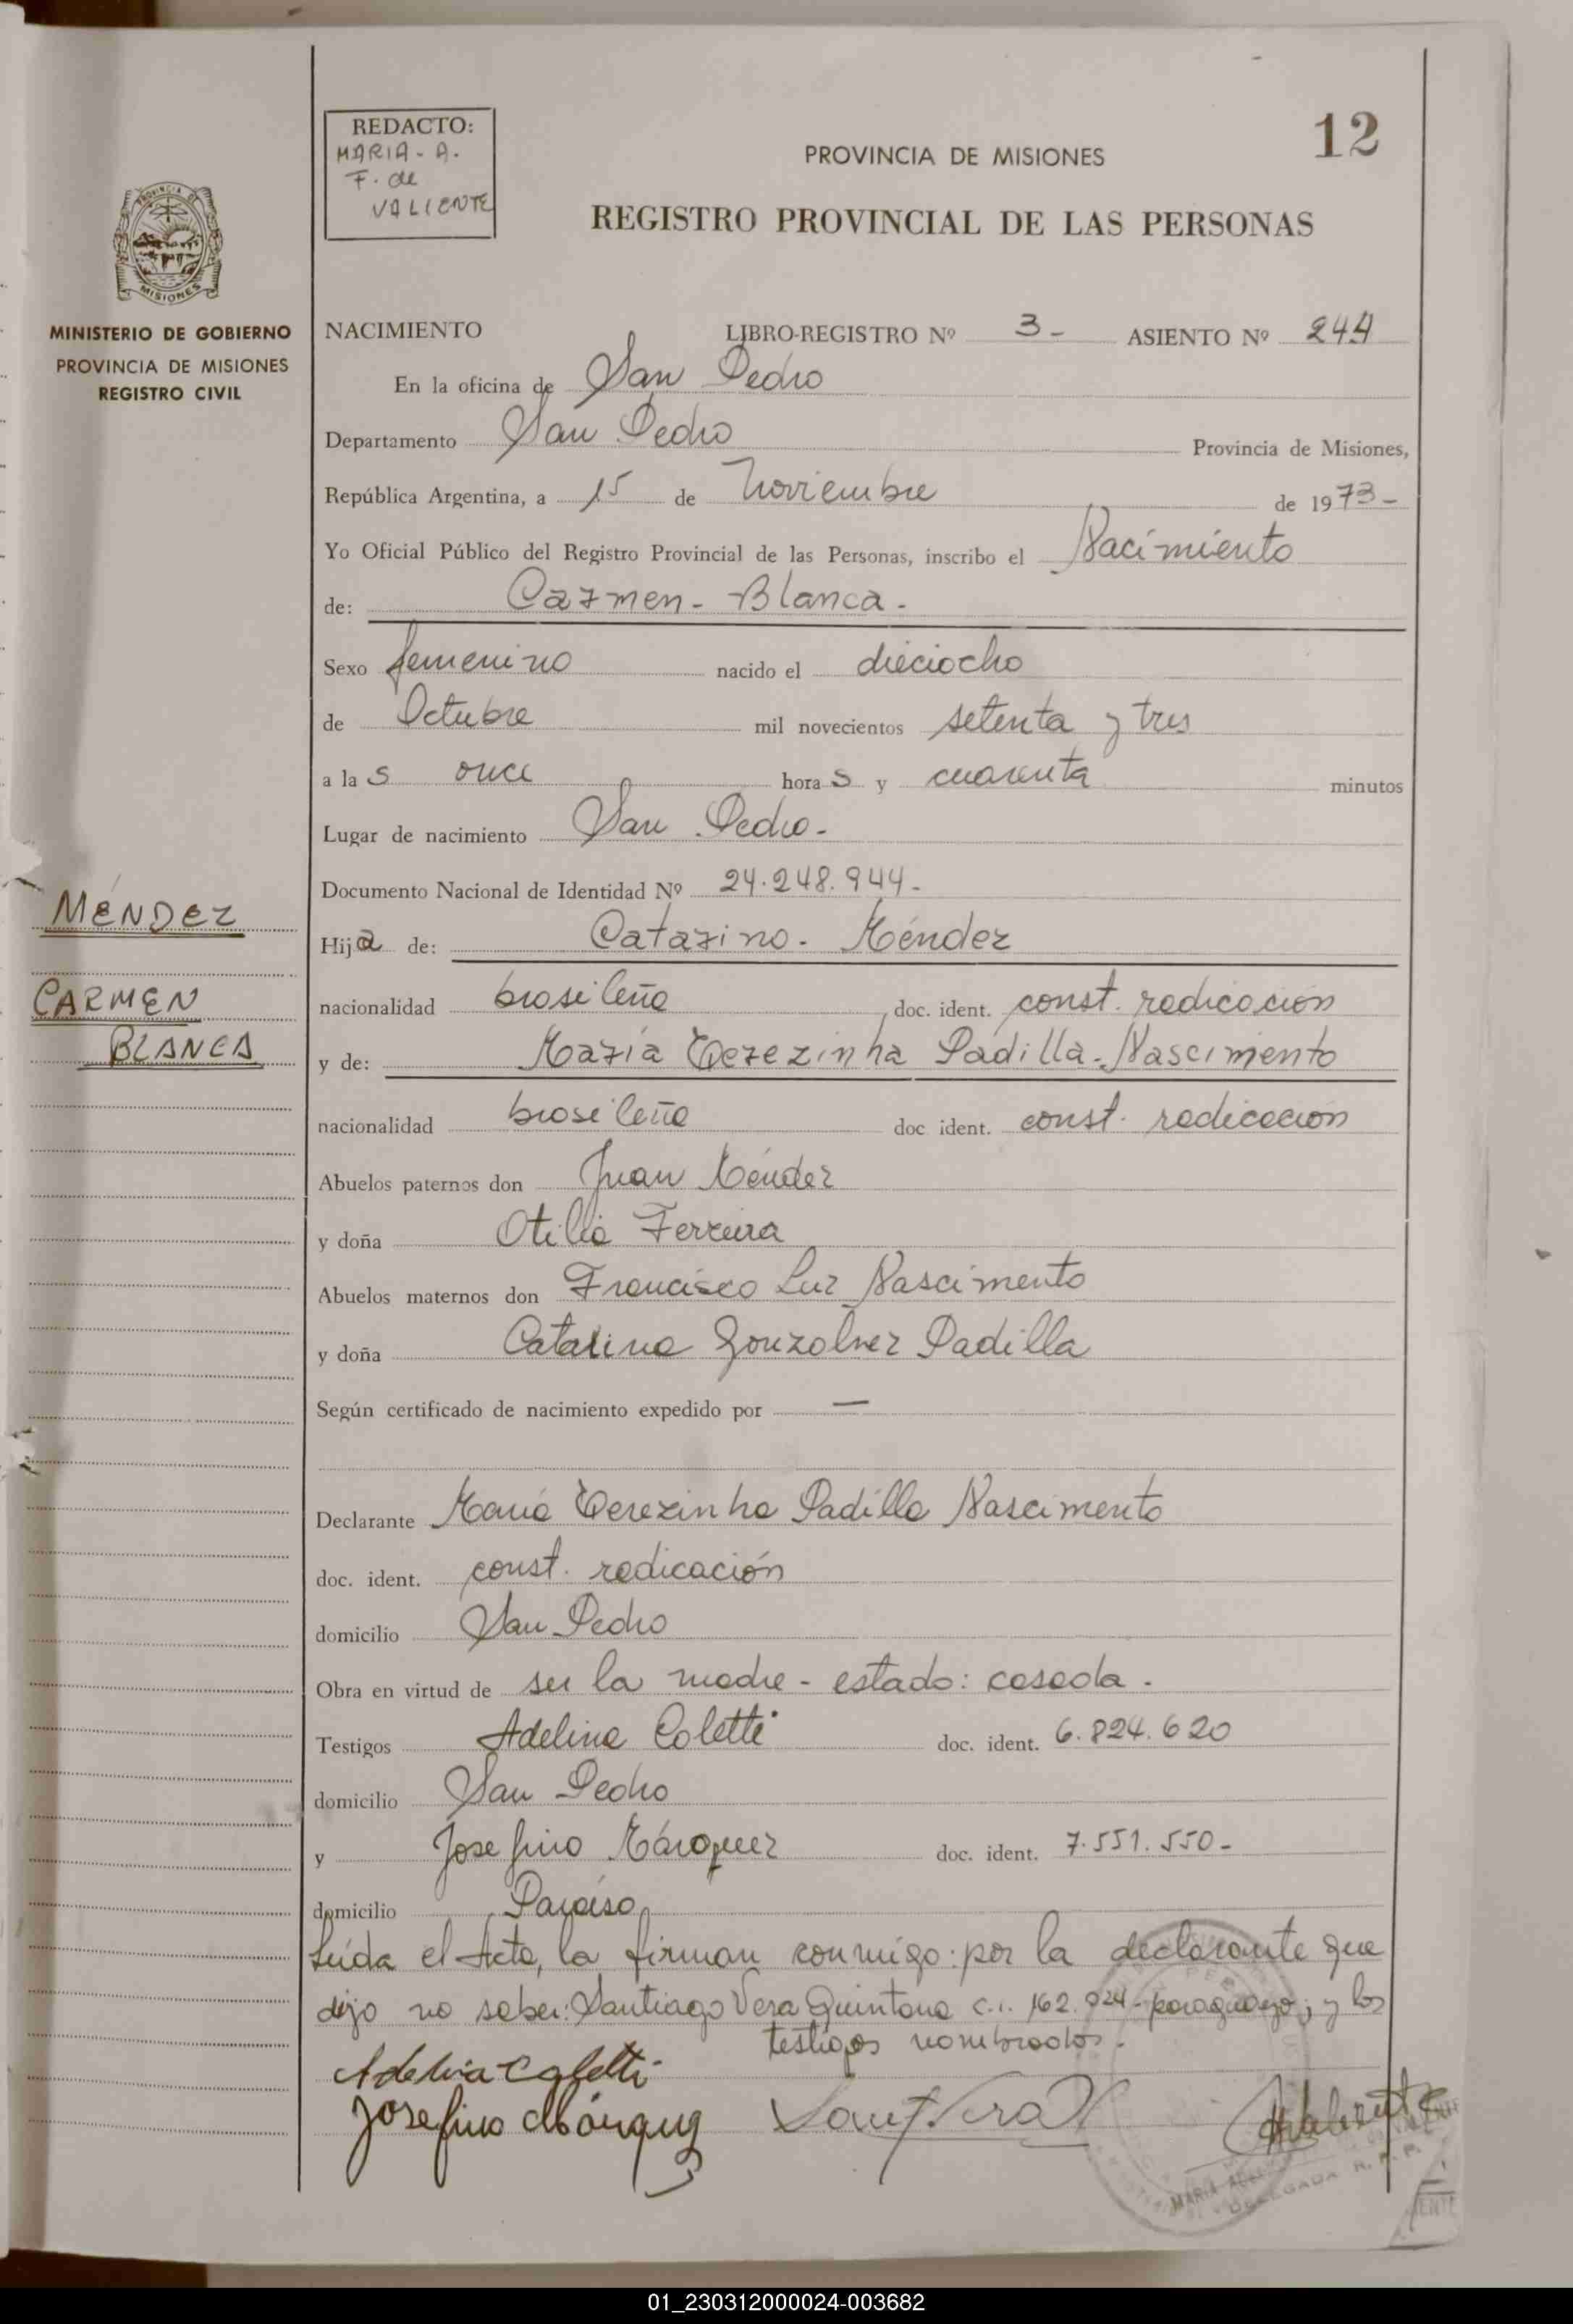 REDACTO:
MARIA - A.
F. de
VALIENTE
12
PROVINCIA DE MISIONES
REGISTRO PROVINCIAL DE LAS PERSONAS
PROVINCIA DE
MISIONES
MINISTERIO DE GOBIERNO
PROVINCIA DE MISIONES
REGISTRO CIVIL
NACIMIENTO LIBRO-REGISTRO Nº 3- ASIENTO Nº 244
En la oficina de San Pedro
Departamento San Pedro Provincia de Misiones,
República Argentina, a 15 de Noviembre de 1973-
Yo Oficial Público del Registro Provincial de las Personas, inscribo el Nacimiento
de: Carmen - Blanca -
Sexo femenino nacido el dieciocho
de Octubre mil novecientos setenta y tres
a las once horas y cuarenta minutos
Lugar de nacimiento San Pedro -
Documento Nacional de Identidad Nº 24.248.944-
MÉNDEZ
CARMEN
BLANCA
Hija de: Catarino - Méndez
nacionalidad brasileña doc. ident. const. radicación
y de: María Terezinha Padilla - Nascimento
nacionalidad brasileña doc ident. const. radicación
Abuelos paternos don Juan Méndez
y doña Otilia Ferreira
Abuelos maternos don Francisco Luz Nascimento
y doña Catalina Gonzalvez Padilla
Según certificado de nacimiento expedido por —
Declarante María Terezinha Padilla Nascimento
doc. ident. const. radicación
domicilio San Pedro
Obra en virtud de ser la madre - estado: casada -
Testigos Adelina Coletti doc. ident. 6.824.620
domicilio San Pedro
y Josefino Márquez doc. ident. 7.551.550-
domicilio Paraíso
Leída el Acta, la firman conmigo: por la declarante que
dijo no saber: Santiago Vera Quintana c.i. 162.924 - paraguayo; y los
testigos nombrados.
Adelina Coletti
Josefino Márquez
MARIA
DELEGADA R. P. P.
01_230312000024-003682